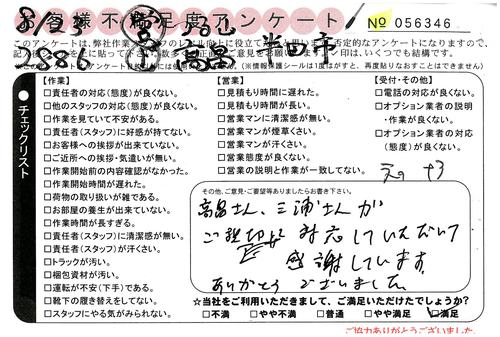 お客様不満足度アンケート
№ 056346
8/23
3886
高畠
半田市
このアンケートは、弊社作業スタッフのレベル向上に役立てようと思います。否定的なアンケートになりますので、
チェックリスト
【作業】
□責任者の対応(態度)が良くない。
□他のスタッフの対応(態度)が良くない。
□作業を見ていて不安がある。
□責任者(スタッフ)に好感が持てない。
□お客様への挨拶が出来ていない。
□ご近所への挨拶・気遣いが無い。
□作業開始前の内容確認がなかった。
□作業開始時間が遅れた。
□荷物の取り扱いが雑である。
□お部屋の養生が出来ていない。
□作業時間が長すぎる。
□責任者(スタッフ)に清潔感が無い。
□責任者(スタッフ)が汗くさい。
□トラックが汚い。
□梱包資材が汚い。
□運転が不安(下手)である。
□靴下の履き替えをしてない。
□スタッフにやる気がみられない。
【営業】
□見積もり時間に遅れた。
□見積もり時間が長い。
□営業マンに清潔感が無い。
□営業マンが煙草くさい。
□営業マンが汗くさい。
□営業態度が良くない。
□営業の説明と作業が一致してない。
【受付・その他】
□電話の対応が良くない。
□オプション業者の説明
・作業が良くない。
□オプション業者の対応
(態度)が良くない。
その他、ご意見・ご要望等ありましたらお書き下さい。
高畠さん、三浦さんが
ご親切に対応していただいて
感謝しています。
ありがとうございました
☆当社をご利用いただきまして、ご満足いただけたでしょうか?
□不満 □やや不満 □普通 □やや満足 □満足
ご協力ありがとうございました。